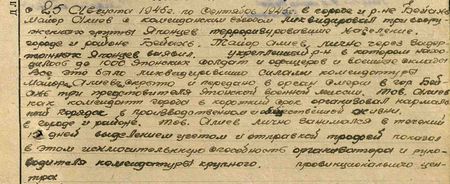 с 25 августа 1945г. по сентябрь 1945г. в городе и р-не Бейань
Майор Алиев с комендантским взводом ликвидировал три воору-
женного группы Японцев терроризировавшие население.
городе и районе Бейань. Майор Алиев, лично через
Японцев выявил, укрепленный р-н в котором нахо-
дилось до 100 Японских солдат и офицеров и военные склады
Все это было ликвидировано силами комендатуры
Майора Алиева, и передано в орган Смерш в гор Бей-
ань три представителя Японской военной миссии. Тов. Алиев
как комендант города в короткий срок организовал нормаль-
ный порядок в производственном и общественной жизни,
городе и районе. Тов. Алиев лично занимался в течении
дней выявлением учетом и отправкой трофей показал
в этом исключительную способность организатора и руко-
водителя комендатуры крупного. провинциального цен-
тра